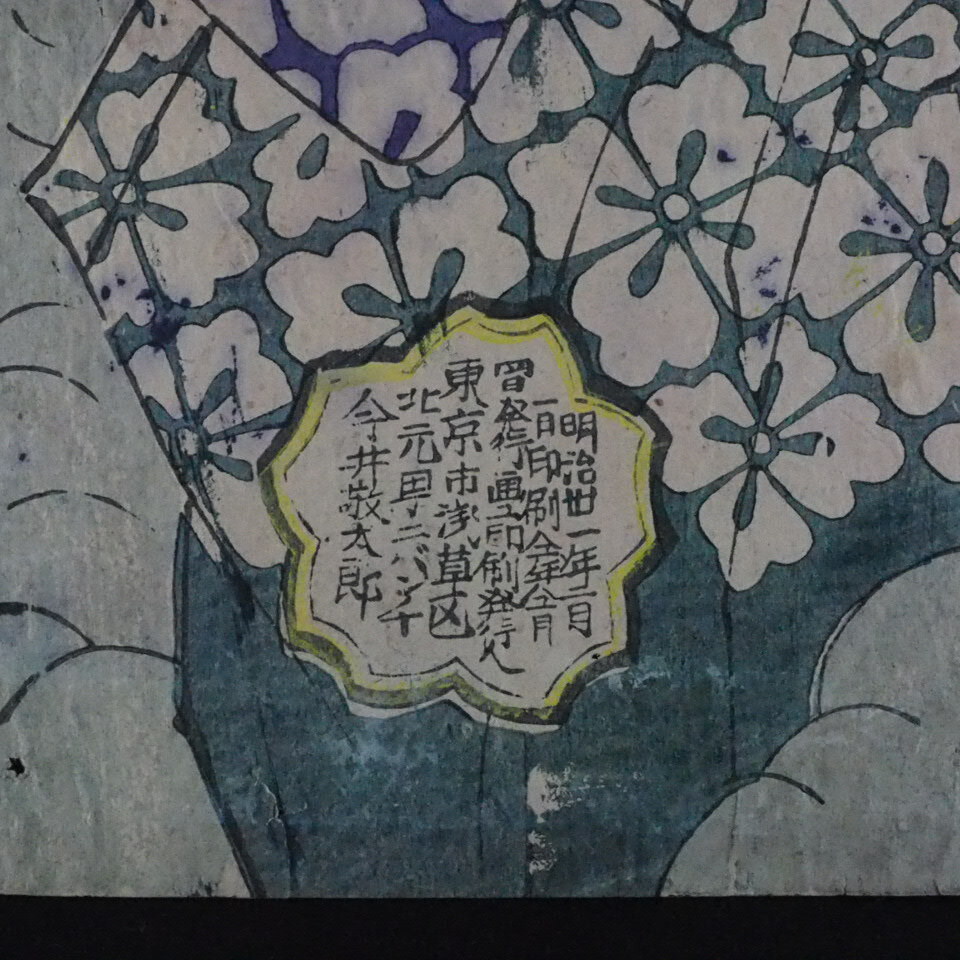 明治丗一年一月
一日印刷仝年仝月
四日発行画工印刷発行人
東京市浅草区
北元町二バンチ
今井敬太郎